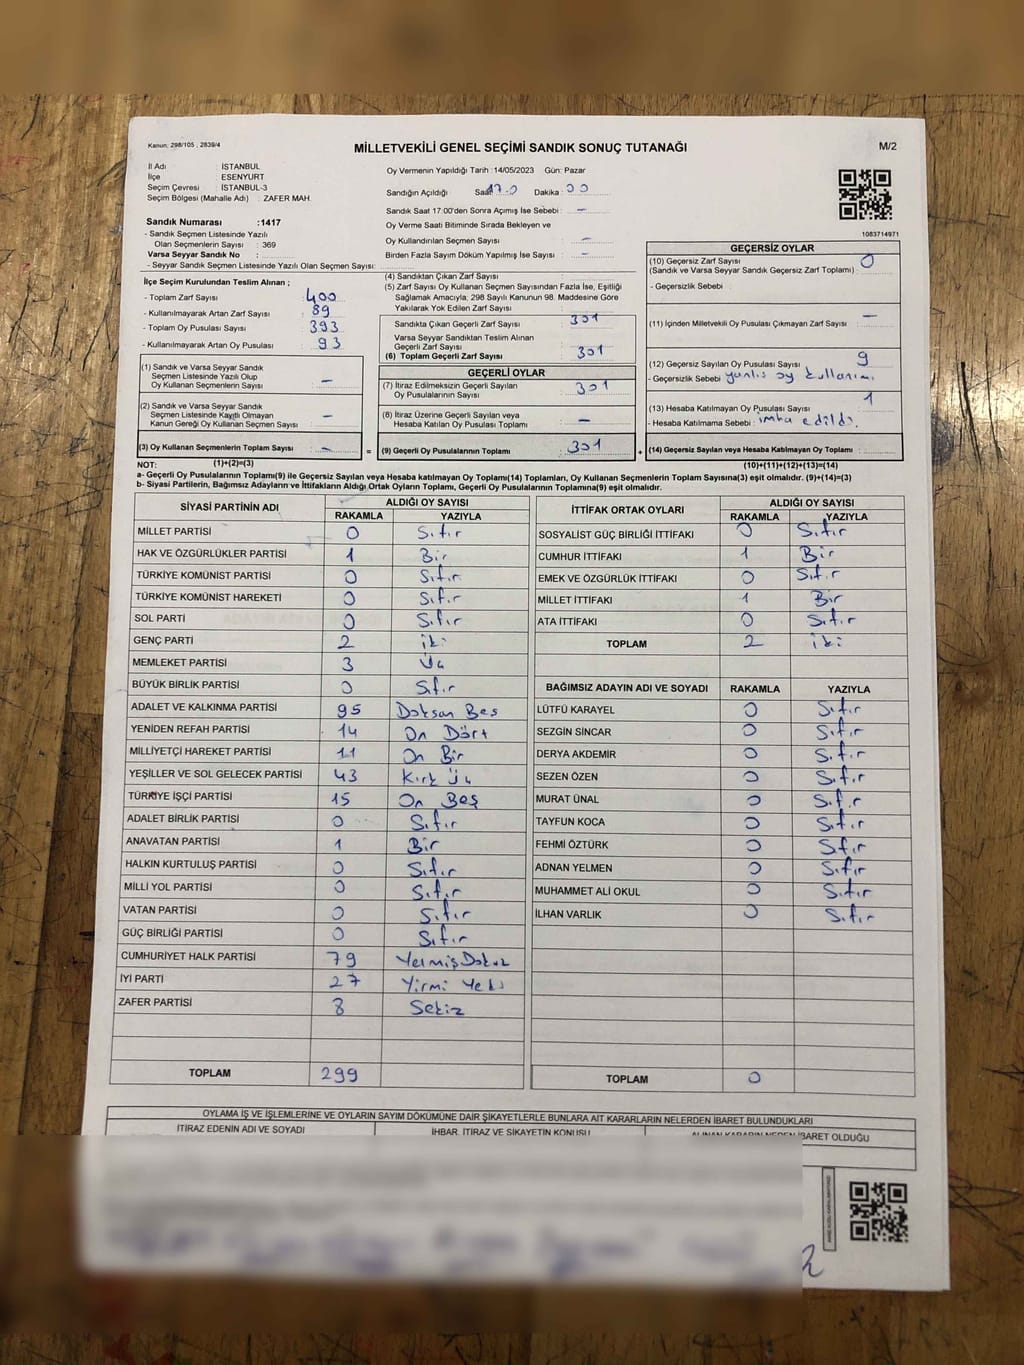 Kanun: 298/105 , 2839/4
MİLLETVEKİLİ GENEL SEÇİMİ SANDIK SONUÇ TUTANAĞI
M/2
İl Adı : İSTANBUL
İlçe : ESENYURT
Seçim Çevresi : İSTANBUL-3
Seçim Bölgesi (Mahalle Adı) : ZAFER MAH.
Sandık Numarası :1417
- Sandık Seçmen Listesinde Yazılı
Olan Seçmenlerin Sayısı : 369
Varsa Seyyar Sandık No :
- Seyyar Sandık Seçmen Listesinde Yazılı Olan Seçmen Sayısı:
İlçe Seçim Kurulundan Teslim Alınan ;
- Toplam Zarf Sayısı : 400
- Kullanılmayarak Artan Zarf Sayısı : 89
- Toplam Oy Pusulası Sayısı : 393
- Kullanılmayarak Artan Oy Pusulası : 93
(1) Sandık ve Varsa Seyyar Sandık
Seçmen Listesinde Yazılı Olup
Oy Kullanan Seçmenlerin Sayısı : –
(2) Sandık ve Varsa Seyyar Sandık
Seçmen Listesinde Kayıtlı Olmayan
Kanun Gereği Oy Kullanan Seçmen Sayısı : –
(3) Oy Kullanan Seçmenlerin Toplam Sayısı : –
(1)+(2)=(3)
Oy Vermenin Yapıldığı Tarih :14/05/2023 Gün: Pazar
Sandığın Açıldığı Saat: 17.0 Dakika : 00
Sandık Saat 17:00'den Sonra Açımış İse Sebebi : –
Oy Verme Saati Bitiminde Sırada Bekleyen ve
Oy Kullandırılan Seçmen Sayısı : –
Birden Fazla Sayım Döküm Yapılmış İse Sayısı : –
(4) Sandıktan Çıkan Zarf Sayısı :
(5) Zarf Sayısı Oy Kullanan Seçmen Sayısından Fazla İse, Eşitliği
Sağlamak Amacıyla; 298 Sayılı Kanunun 98. Maddesine Göre
Yakılarak Yok Edilen Zarf Sayısı :
Sandıkta Çıkan Geçerli Zarf Sayısı : 301
Varsa Seyyar Sandıktan Teslim Alınan
Geçerli Zarf Sayısı :
(6) Toplam Geçerli Zarf Sayısı : 301
GEÇERLİ OYLAR
(7) İtiraz Edilmeksizin Geçerli Sayılan
Oy Pusulalarının Sayısı : 301
(8) İtiraz Üzerine Geçerli Sayılan veya
Hesaba Katılan Oy Pusulası Toplamı : –
= (9) Geçerli Oy Pusulalarının Toplamı : 301 +
1083714971
GEÇERSİZ OYLAR
(10) Geçersiz Zarf Sayısı : 0
(Sandık ve Varsa Seyyar Sandık Geçersiz Zarf Toplamı)
- Geçersizlik Sebebi :
(11) İçinden Milletvekili Oy Pusulası Çıkmayan Zarf Sayısı : –
(12) Geçersiz Sayılan Oy Pusulası Sayısı : 9
- Geçersizlik Sebebi : yanlış oy kullanımı
(13) Hesaba Katılmayan Oy Pusulası Sayısı : 1
- Hesaba Katılmama Sebebi : imha edildi.
(14) Geçersiz Sayılan veya Hesaba Katılmayan Oy Toplamı :
(10)+(11)+(12)+(13)=(14)
NOT:
a- Geçerli Oy Pusulalarının Toplamı(9) ile Geçersiz Sayılan veya Hesaba katılmayan Oy Toplamı(14) Toplamları, Oy Kullanan Seçmenlerin Toplam Sayısına(3) eşit olmalıdır. (9)+(14)=(3)
b- Siyasi Partilerin, Bağımsız Adayların ve İttifakların Aldığı Ortak Oyların Toplamı, Geçerli Oy Pusulalarının Toplamına(9) eşit olmalıdır.
SİYASİ PARTİNİN ADI ALDIĞI OY SAYISI
RAKAMLA YAZIYLA
MİLLET PARTİSİ 0 Sıfır
HAK VE ÖZGÜRLÜKLER PARTİSİ 1 Bir
TÜRKİYE KOMÜNİST PARTİSİ 0 Sıfır
TÜRKİYE KOMÜNİST HAREKETİ 0 Sıfır
SOL PARTİ 0 Sıfır
GENÇ PARTİ 2 iki
MEMLEKET PARTİSİ 3 Üç
BÜYÜK BİRLİK PARTİSİ 0 Sıfır
ADALET VE KALKINMA PARTİSİ 95 Doksan Beş
YENİDEN REFAH PARTİSİ 14 On Dört
MİLLİYETÇİ HAREKET PARTİSİ 11 On Bir
YEŞİLLER VE SOL GELECEK PARTİSİ 43 Kırk Üç
TÜRKİYE İŞÇİ PARTİSİ 15 On Beş
ADALET BİRLİK PARTİSİ 0 Sıfır
ANAVATAN PARTİSİ 1 Bir
HALKIN KURTULUŞ PARTİSİ 0 Sıfır
MİLLİ YOL PARTİSİ 0 Sıfır
VATAN PARTİSİ 0 Sıfır
GÜÇ BİRLİĞİ PARTİSİ 0 Sıfır
CUMHURİYET HALK PARTİSİ 79 Yetmiş Dokuz
İYİ PARTİ 27 Yirmi Yedi
ZAFER PARTİSİ 8 Sekiz
TOPLAM 299
İTTİFAK ORTAK OYLARI ALDIĞI OY SAYISI
RAKAMLA YAZIYLA
SOSYALİST GÜÇ BİRLİĞİ İTTİFAKI 0 Sıfır
CUMHUR İTTİFAKI 1 Bir
EMEK VE ÖZGÜRLÜK İTTİFAKI 0 Sıfır
MİLLET İTTİFAKI 1 Bir
ATA İTTİFAKI 0 Sıfır
TOPLAM 2 iki
BAĞIMSIZ ADAYIN ADI VE SOYADI RAKAMLA YAZIYLA
LÜTFÜ KARAYEL 0 Sıfır
SEZGİN SİNCAR 0 Sıfır
DERYA AKDEMİR 0 Sıfır
SEZEN ÖZEN 0 Sıfır
MURAT ÜNAL 0 Sıfır
TAYFUN KOCA 0 Sıfır
FEHMİ ÖZTÜRK 0 Sıfır
ADNAN YELMEN 0 Sıfır
MUHAMMET ALİ OKUL 0 Sıfır
İLHAN VARLIK 0 Sıfır
TOPLAM 0
OYLAMA İŞ VE İŞLEMLERİNE VE OYLARIN SAYIM DÖKÜMÜNE DAİR ŞİKAYETLERLE BUNLARA AİT KARARLARIN NELERDEN İBARET BULUNDUKLARI
İTİRAZ EDENİN ADI VE SOYADI İHBAR, İTİRAZ VE ŞİKAYETİN KONUSU ALINAN KARARIN NEDEN İBARET OLDUĞU